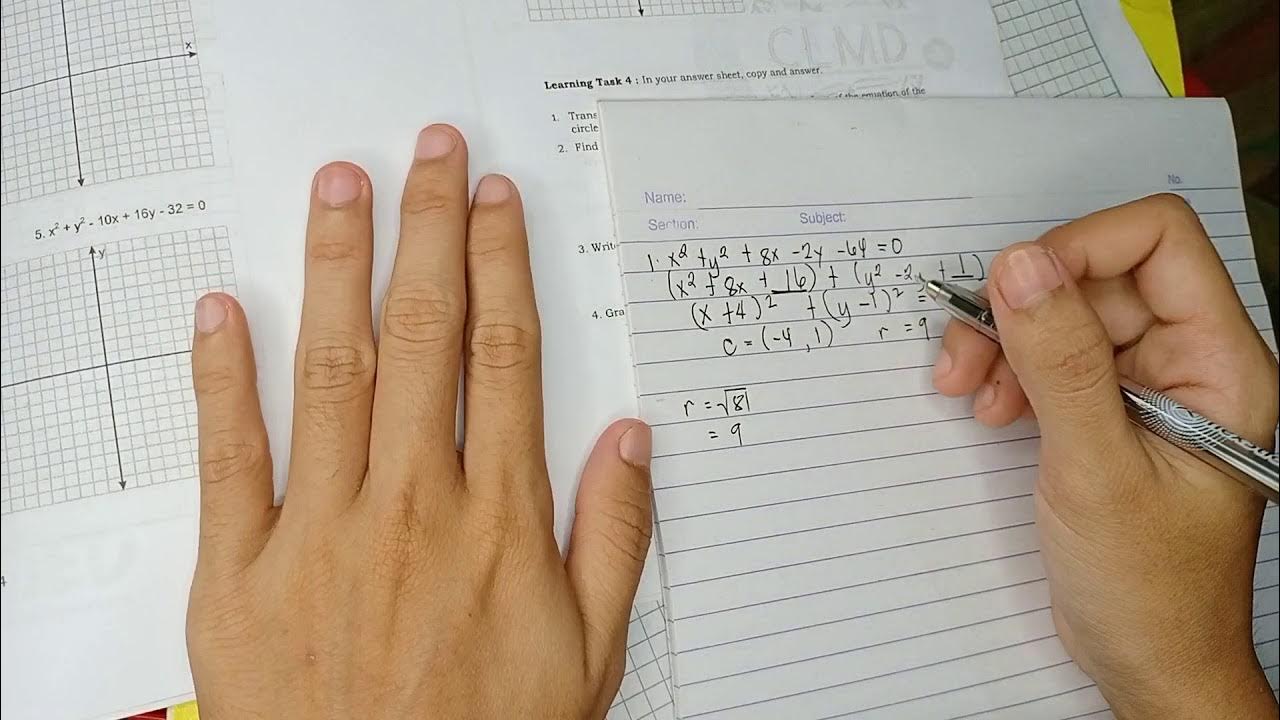 x
5. x² + y² - 10x + 16y - 32 = 0
y
CLMD
Learning Task 4 : In your answer sheet, copy and answer.
of the equation of the
1. Trans
circle
2. Find
3. Write
4. Gra
No.
Name:
Section: Subject:
1. x² + y² + 8x - 2y - 64 = 0
(x² + 8x + 16) + (y² - 2y + 1)
(x + 4)² + (y - 1)² =
C = (-4, 1) r = 9
r = √81
= 9